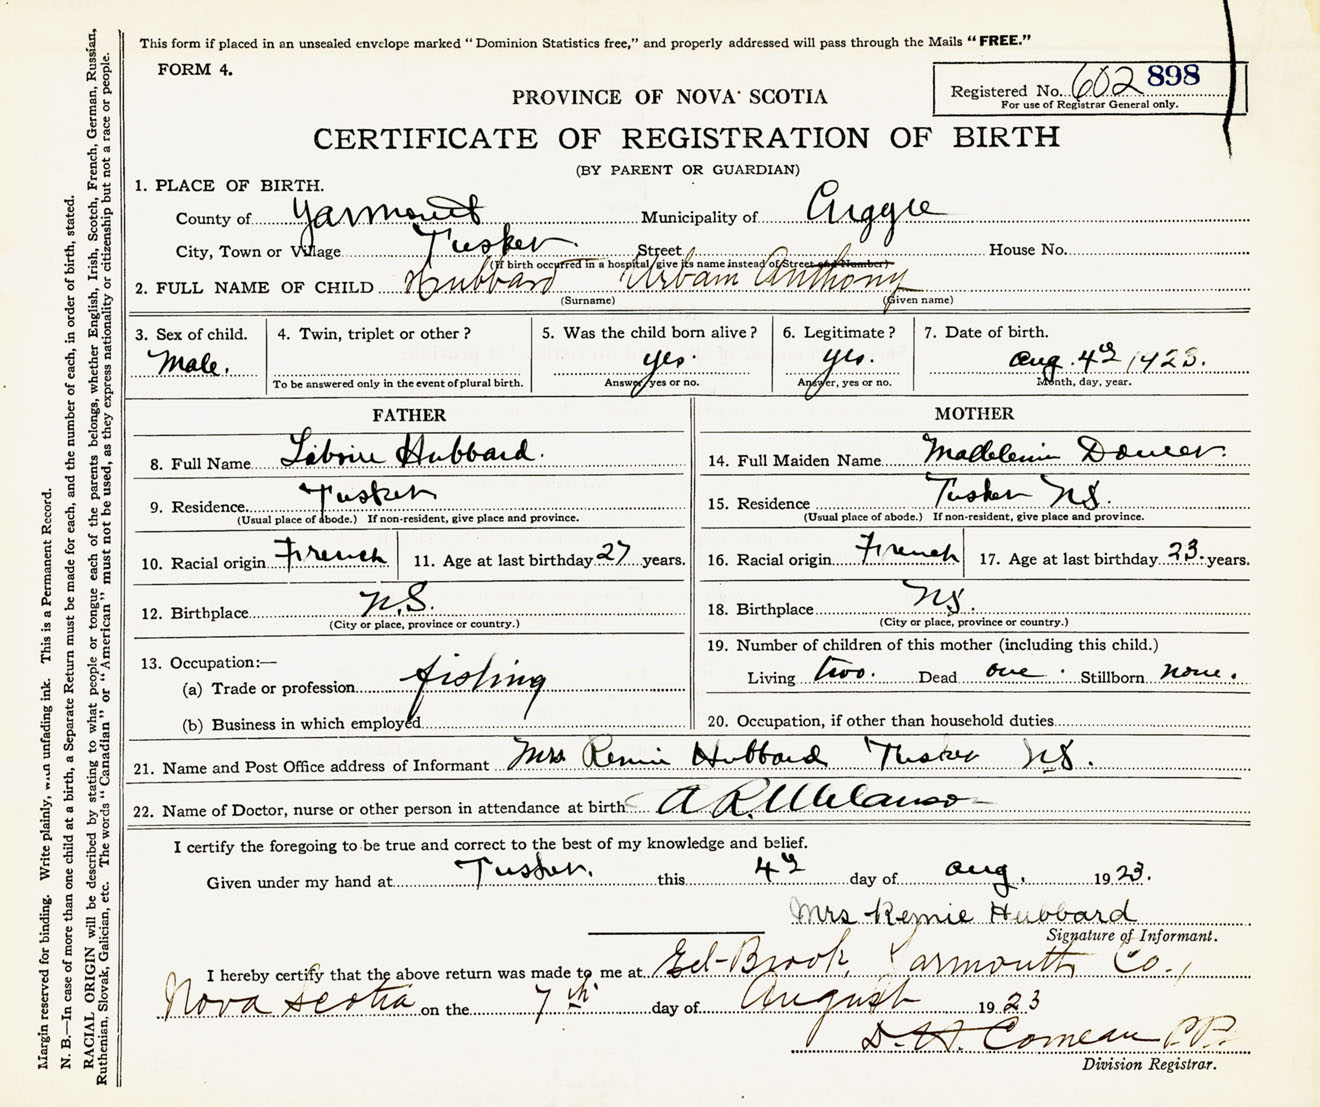 This form if placed in an unsealed envelope marked "Dominion Statistics free," and properly addressed will pass through the Mails "FREE."
FORM 4.
Registered No. 602 898
For use of Registrar General only.
PROVINCE OF NOVA SCOTIA
CERTIFICATE OF REGISTRATION OF BIRTH
(BY PARENT OR GUARDIAN)
1. PLACE OF BIRTH.
County of Yarmouth Municipality of Argyle
City, Town or Village Tusket Street House No.
(If birth occurred in a hospital give its name instead of Street and Number)
2. FULL NAME OF CHILD Hubbard Urbam Anthony
(Surname) (Given name)
3. Sex of child. 4. Twin, triplet or other? 5. Was the child born alive? 6. Legitimate? 7. Date of birth.
Male. yes. yes. Aug. 4th 1923.
To be answered only in the event of plural birth. Answer, yes or no. Answer, yes or no. Month, day, year.
FATHER
8. Full Name Hubbard.
9. Residence Tusket
(Usual place of abode.) If non-resident, give place and province.
10. Racial origin French 11. Age at last birthday 27 years.
12. Birthplace N.S.
(City or place, province or country.)
13. Occupation:—
(a) Trade or profession fishing
(b) Business in which employed
MOTHER
14. Full Maiden Name
15. Residence Tusket NS.
(Usual place of abode.) If non-resident, give place and province.
16. Racial origin French 17. Age at last birthday 23. years.
18. Birthplace NS.
(City or place, province or country.)
19. Number of children of this mother (including this child.)
Living two. Dead one. Stillborn none.
20. Occupation, if other than household duties
21. Name and Post Office address of Informant Mrs Remie Hubbard Tusket NS.
22. Name of Doctor, nurse or other person in attendance at birth A R Melanson
I certify the foregoing to be true and correct to the best of my knowledge and belief.
Given under my hand at Tusket. this 4th day of Aug. 1923.
Mrs Remie Hubbard
Signature of Informant.
I hereby certify that the above return was made to me at Eel-Brook, Yarmouth Co.,
Nova Scotia on the 7th day of August 1923
D. H. Comeau P.P.
Division Registrar.
Margin reserved for binding. Write plainly, unfading ink. This is a Permanent Record.
N. B.—In case of more than one child at a birth, a Separate Return must be made for each, and the number of each, in order of birth, stated.
RACIAL ORIGIN will be described by stating to what people or tongue each of the parents belongs, whether English, Irish, Scotch, French, German, Russian,
Ruthenian, Slovak, Galician, etc. The words "Canadian" or "American" must not be used, as they express nationality or citizenship but not a race or people.